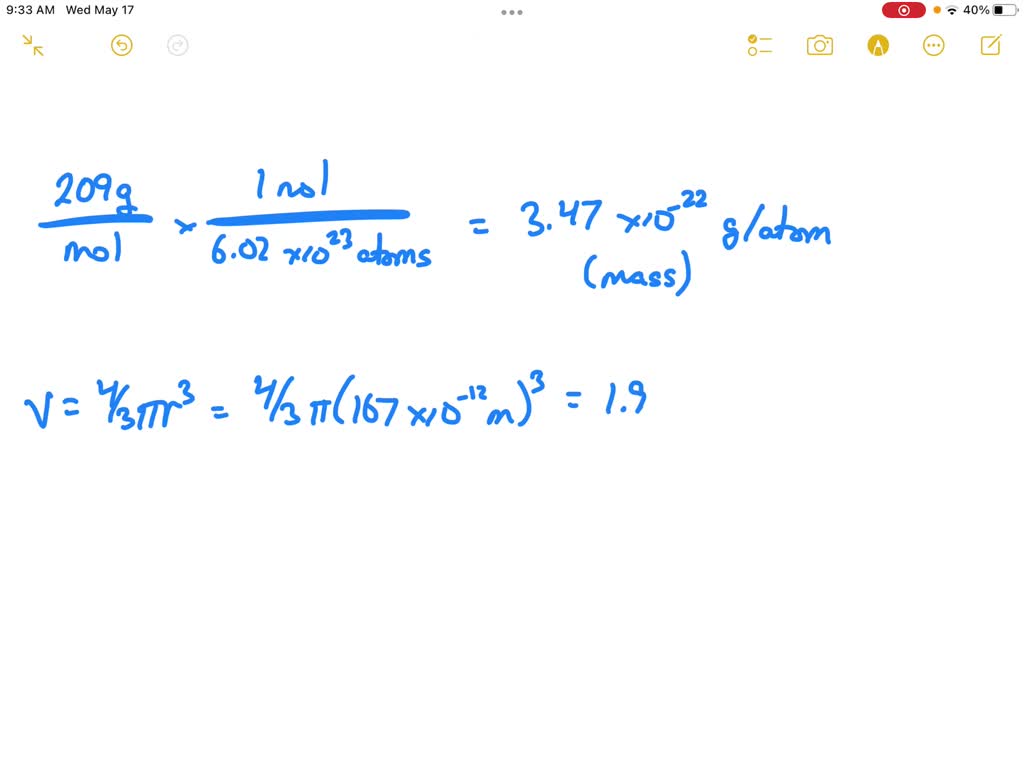 9:33 AM Wed May 17
40%
209g/mol × 1 mol/6.02 ×10²³ atoms = 3.47 ×10⁻²² g/atom
(mass)
V = 4/3πr³ = 4/3 π(167 ×10⁻¹² m)³ = 1.9